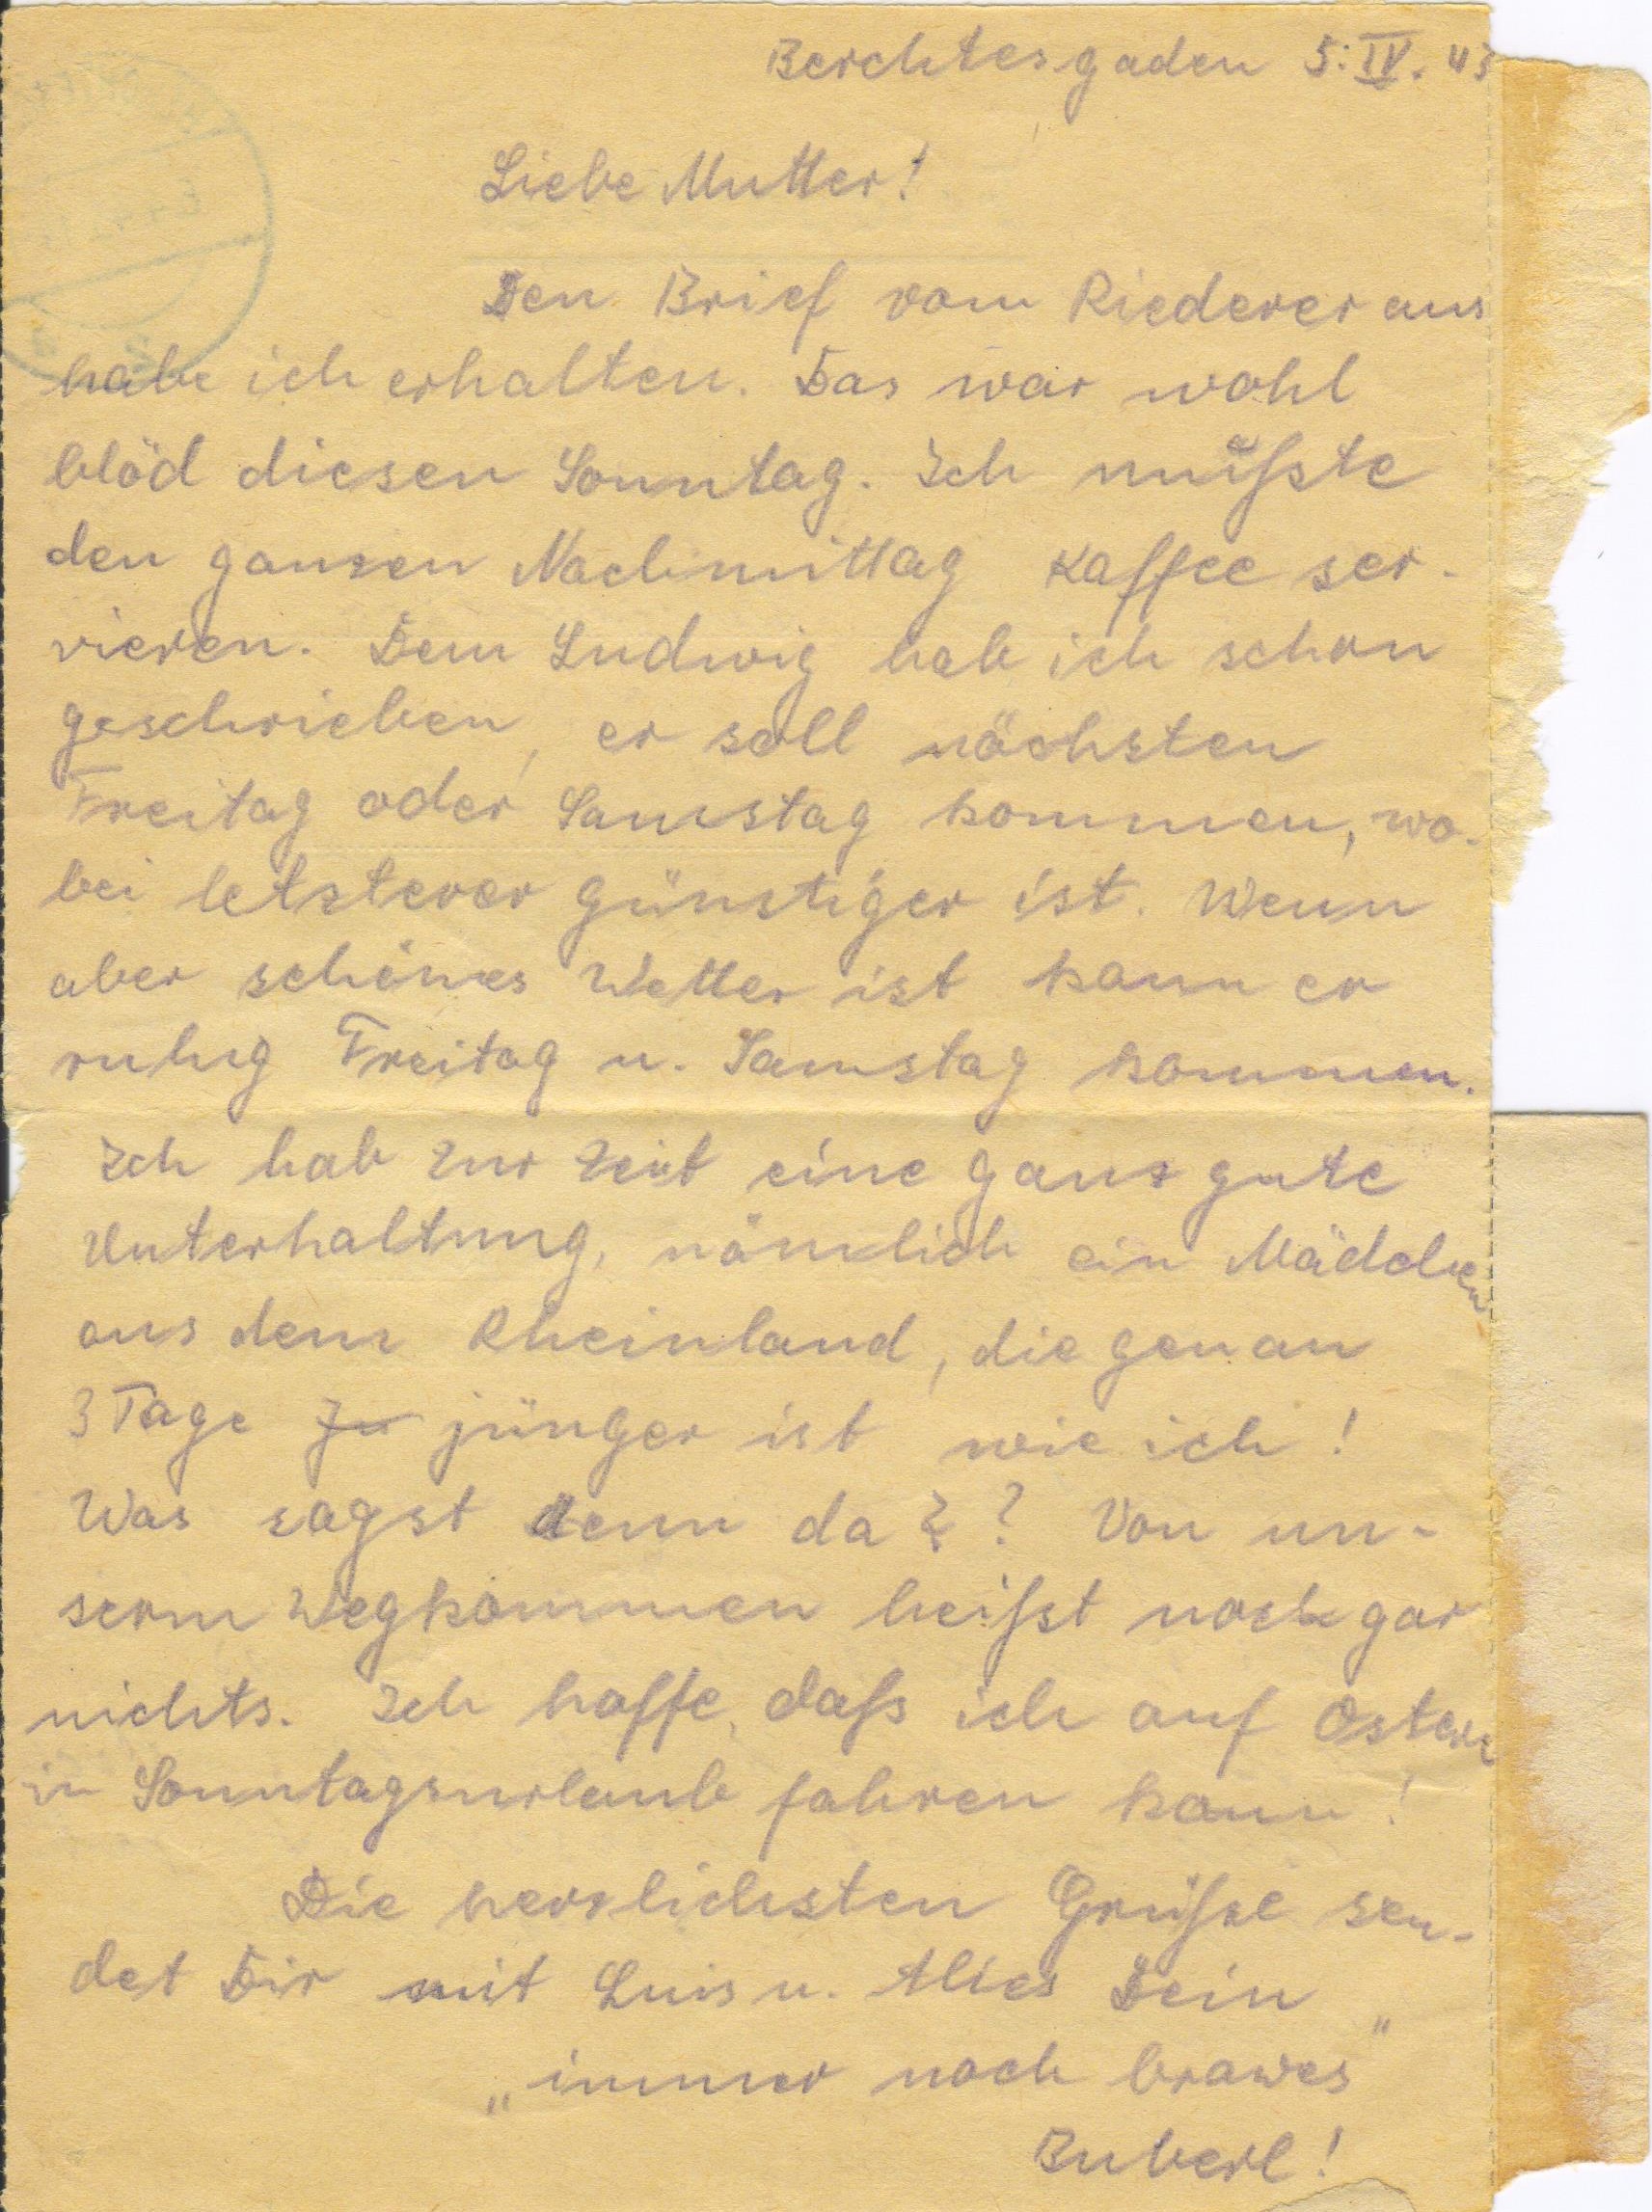 Berchtesgaden 5.IV.43
Liebe Mutter!
Den Brief vom Riederer aus
habe ich erhalten. Das war wohl
blöd diesen Sonntag. Ich mußste
den ganzen Nachmittag Kaffee ser-
vieren. Dem Ludwig hab ich schon
geschrieben, er soll nächsten
Freitag oder Samstag kommen, wo-
bei letzterer günstiger ist. Wenn
aber schönes Wetter ist kann er
ruhig Freitag u. Samstag kommen.
Ich hab zur Zeit eine ganz gute
Unterhaltung, nämlich ein Mädchen
aus dem Rheinland, die genau
3 Tage jünger ist wie ich!
Was sagst denn da ? ? Von un-
serm Wegkommen heißt noch gar
nichts. Ich hoffe, daß ich auf Ostern
in Sonntagsurlaub fahren kann!
Die herzlichsten Grüße sen-
det Dir mit Luis u. Alles Dein
„immer noch braves"
Buberl!